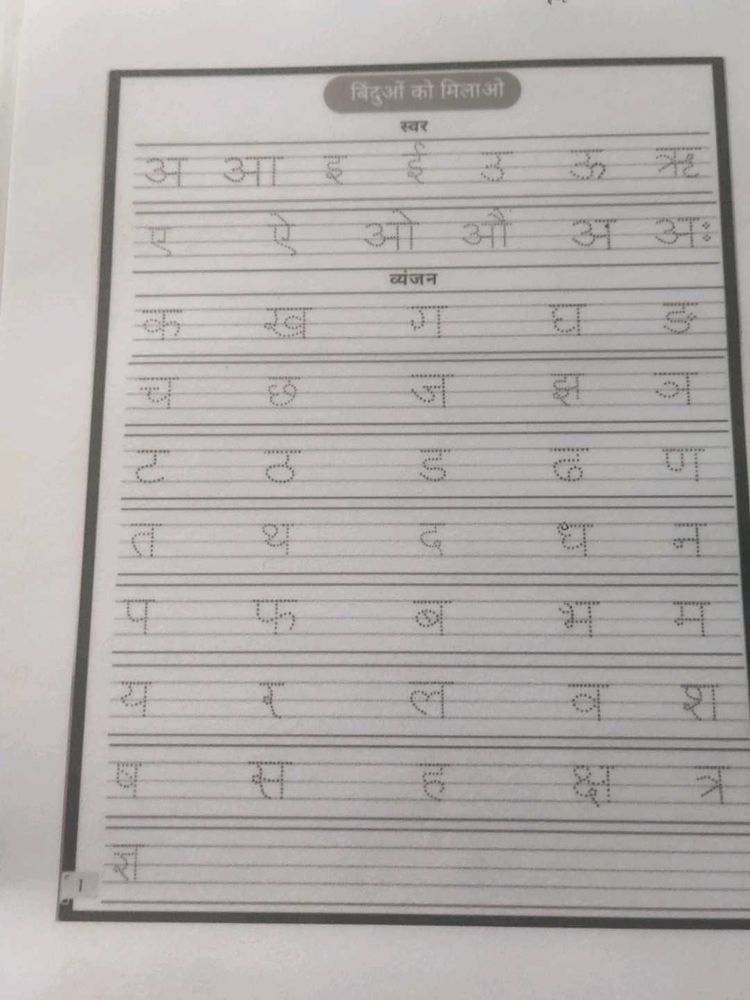 बिंदुओं को मिलाओ
स्वर
अ आ इ ई उ ऊ ऋ
ए ऐ ओ औ अ अः
व्यंजन
क ख ग घ ङ
च छ ज झ ञ
ट ठ ड ढ ण
त थ द ध न
प फ ब भ म
य र ल व श
ष स ह क्ष त्र
ज्ञ
1